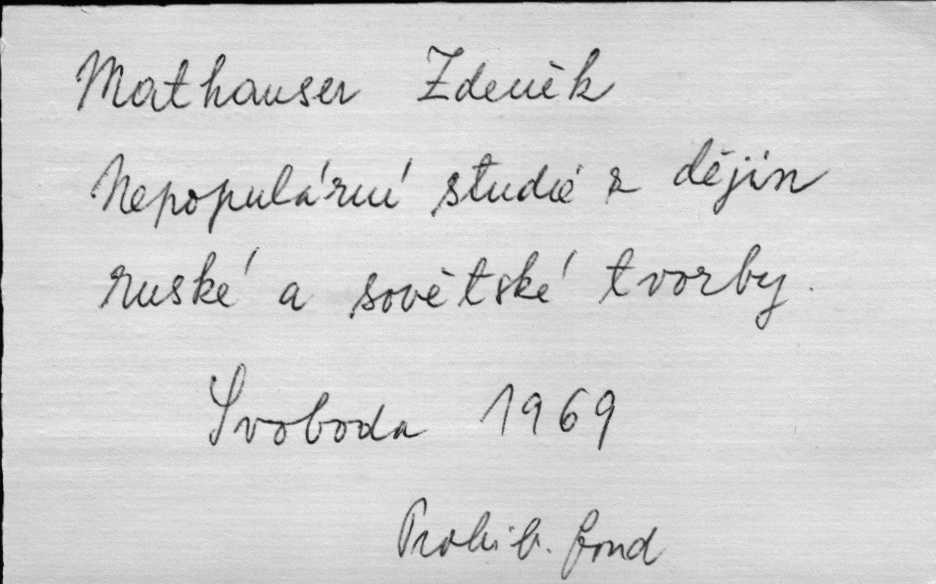 Mathauser Zdeněk
Nepopulární studie z dějin
ruské a sovětské tvorby.
Svoboda 1969
Prohib. fond